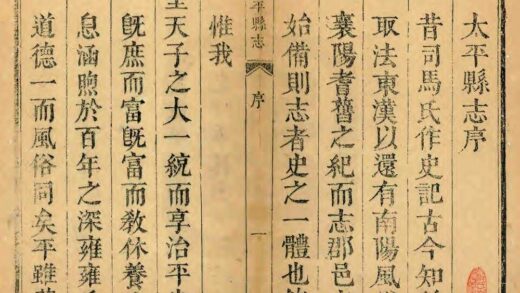 太平縣志序
昔司馬氏作史記古今知
取法東漢以還有南陽風
襄陽耆舊之紀而志郡邑
始備則志者史之一體也
平縣志 序 一
惟我
天子之大一統而享治平
旣庶而富旣富而敎休養
息涵煦於百年之深雍雍
道德一而風俗同矣平雖